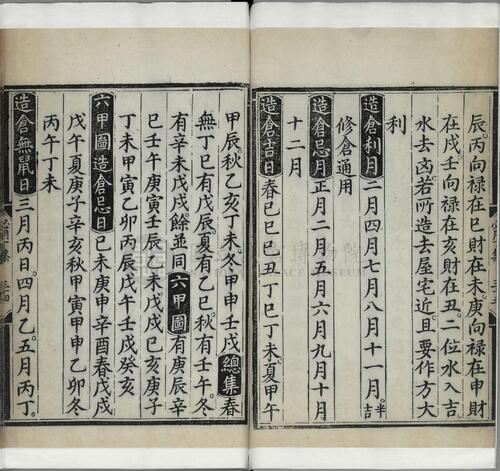 辰。丙向禄在巳財在未。庚向禄在申財
在戌壬向禄在亥財在丑。二位水入吉
水去凶。若所造去屋宅近。且要作方大
利
造倉利月 二月四月七月八月十一月。半吉
修倉通用
造倉忌月 正月二月五月六月九月十月
十二月
造倉吉日 春己巳己丑丁巳丁未。夏甲午
甲辰。秋乙亥丁未冬甲申壬戌 總集 春
無丁巳有戊辰。夏有乙巳。秋有壬午。冬
有辛未戊戌餘並同 六甲圖 有庚辰辛
巳壬午庚寅壬辰乙未戊戌己亥庚子
丁未甲寅乙卯丙辰戊午壬戌癸亥
六甲圖造倉忌日 己未庚申辛酉春戊戌
戊午夏庚子辛亥秋甲寅甲申乙卯冬
丙午丁未
造倉無鼠日 三月丙日。四月乙。五月丙丁。